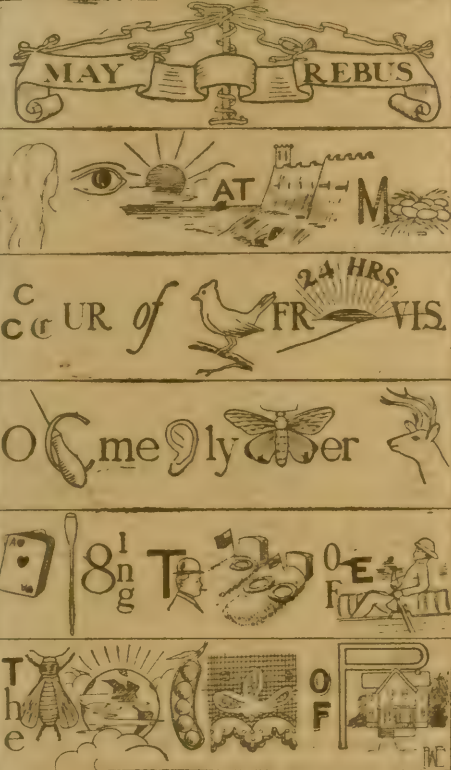 MAY REBUS
AT M
C C C UR of FR 24 HRS. VIS.
O me ly er
A 8 ing T OF E
The OF